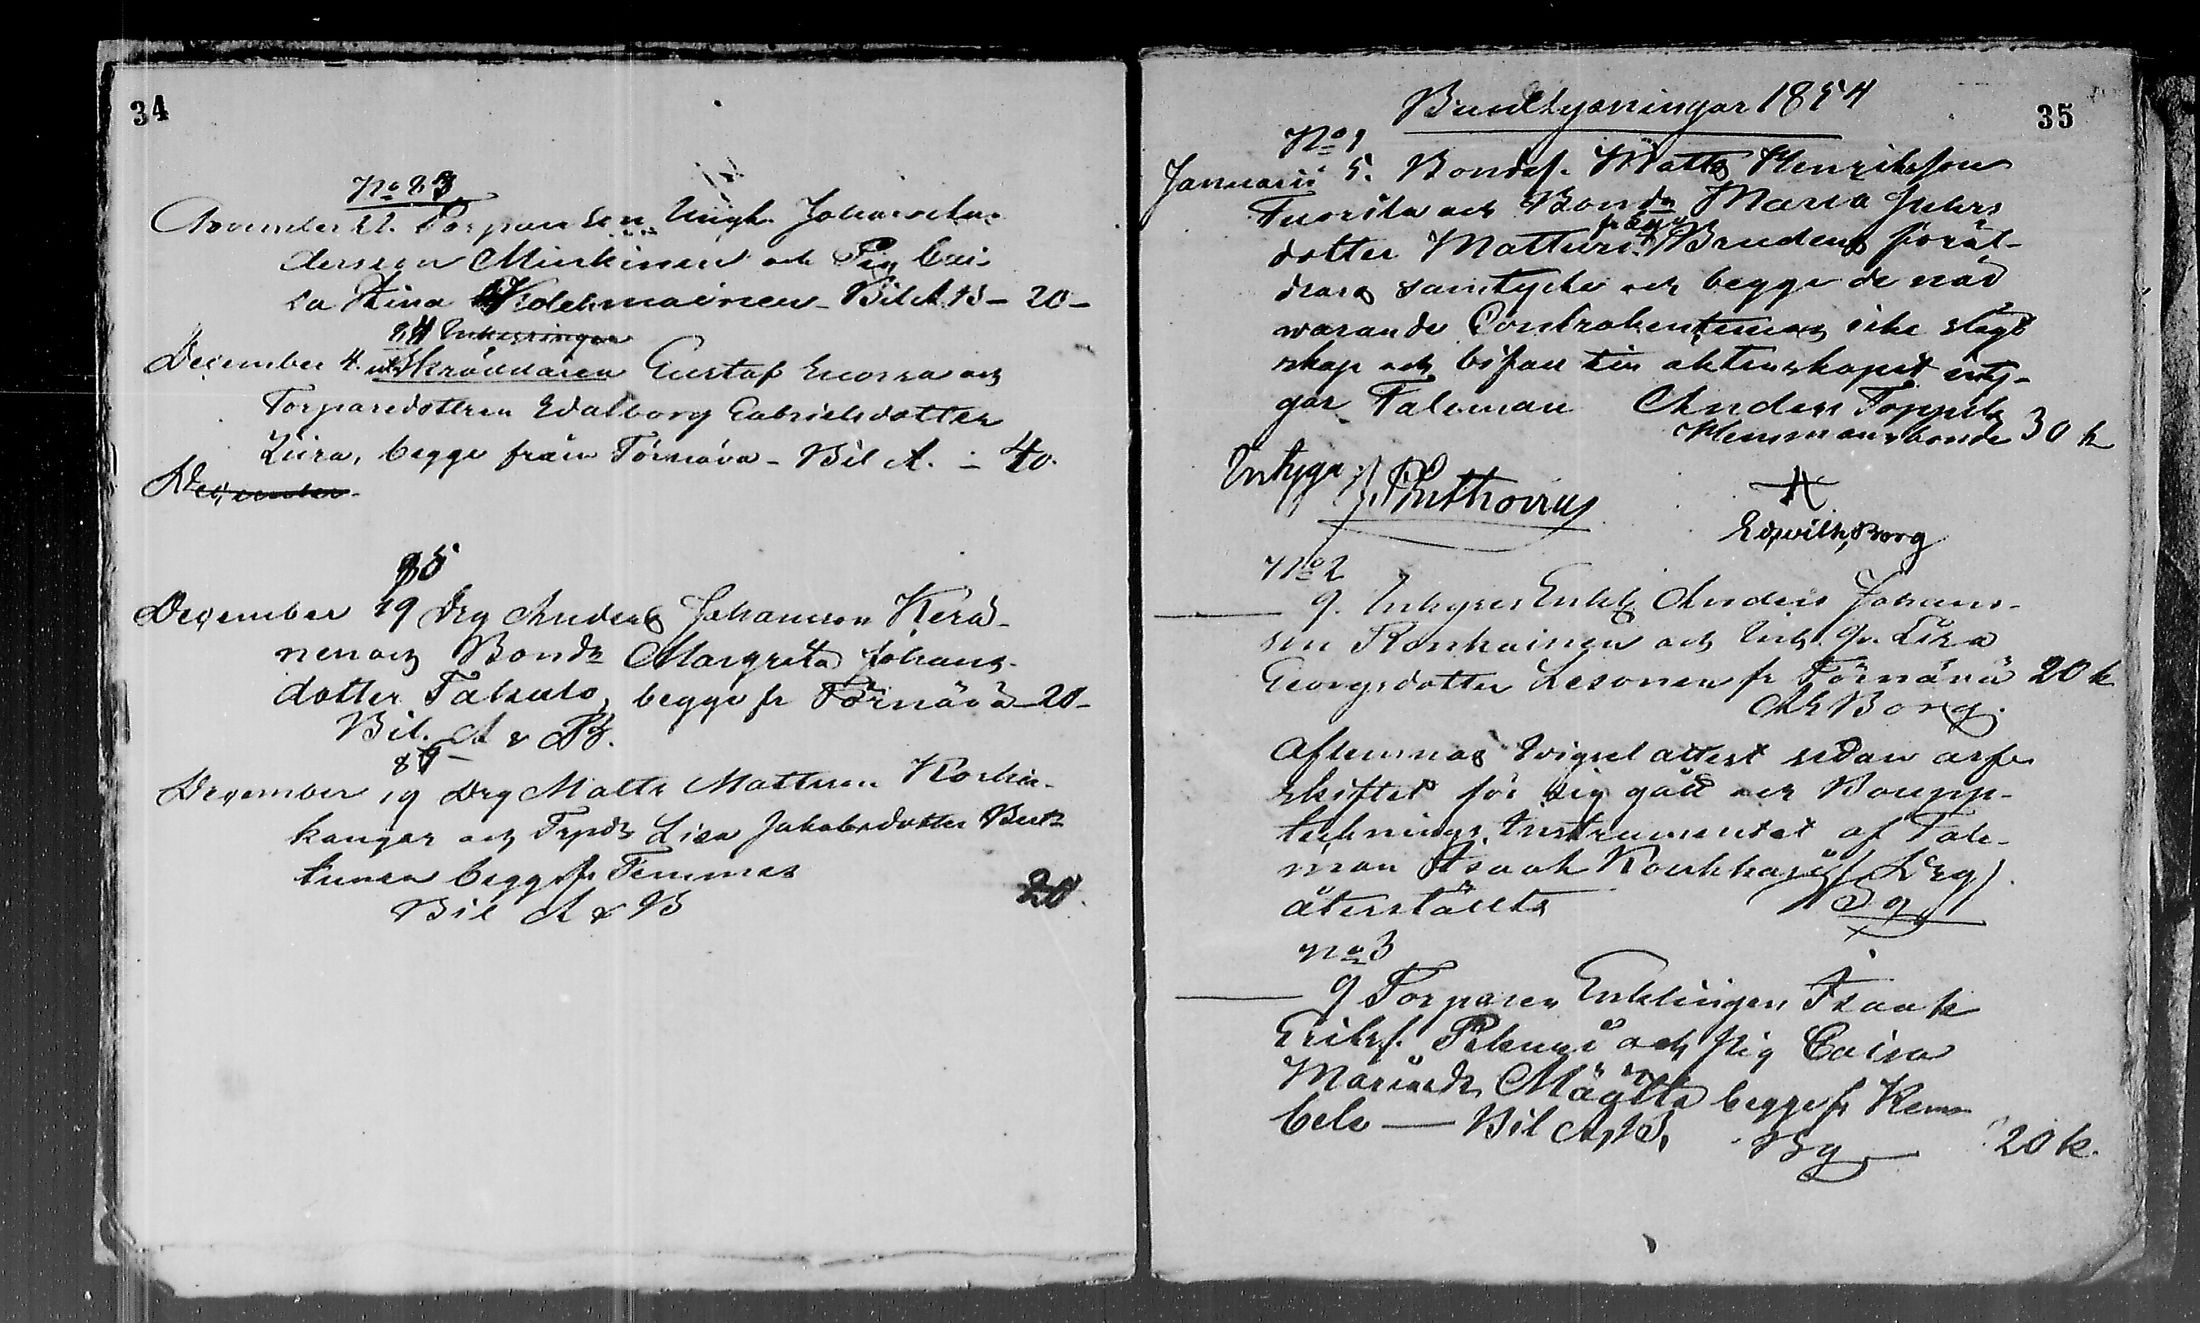 34
No 83
November 27. Torparesen Ungk. Johan An-
dersson Mickinen och Pig. Cai-
sa Stina Kolehmainen - Bil A. B - 20 -
84 Inhysingen
December 4. Skräddaren Gustaf Enossa och
Torparedottren Edalborg Gabrielsdotter
Liira, begge från Törnävä - Bil A. - 40.
December.
85
December 19 Drg Anders Johansson Kerä-
nen och Bondr Margreta Johans-
dotter Takalo, begge fr Törnävä - 20 -
Bil. A & B.
86
December 19 Drg Matts Mattsson Korkia-
kangas och Trpdr Lisa Jakobsdotter
begge fr Temmes
Bil A & B
20.
35
Brudlysningar 1854
No 1
Januarii 5. Bondes. Matts Henriksson
Tuorila och Bondr Maria Juhos
dotter Matturi. Brudens föräl-
drars samtycke och begge de när
warande Contrahenternas icke slägt
skap och bifall till äktenskapet inty-
gar Taloman Anders Toppila
Hemmansbonde 30 k
Intygar J. Ponthovius
Ed, wilh, Borg
No 2
9. Inhyses Enkl Anders Johans-
son Ronkainen och Inh. Qv. Lisa
Georgsdotter Lesonen fr Törnävä 20 k
Borg.
Aflemnas Wigsel attest sedan arf-
skiftet för sig gått och Boupp-
teknings Instrumentet af Tale-
man Isaak Koukkari
återställts Bg
No 3
9 Torparen Enklingen Isaak
Eriks. Pekuri och Pig Caisa
Mariædr Määttä begge fr Kem-
bele — Bil A, B, Bg 20 k.